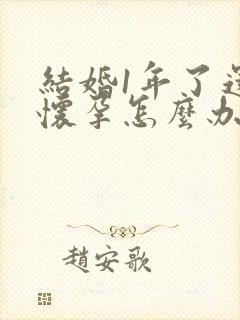 結婚1年了還
懷孕怎麼办
趙安歌